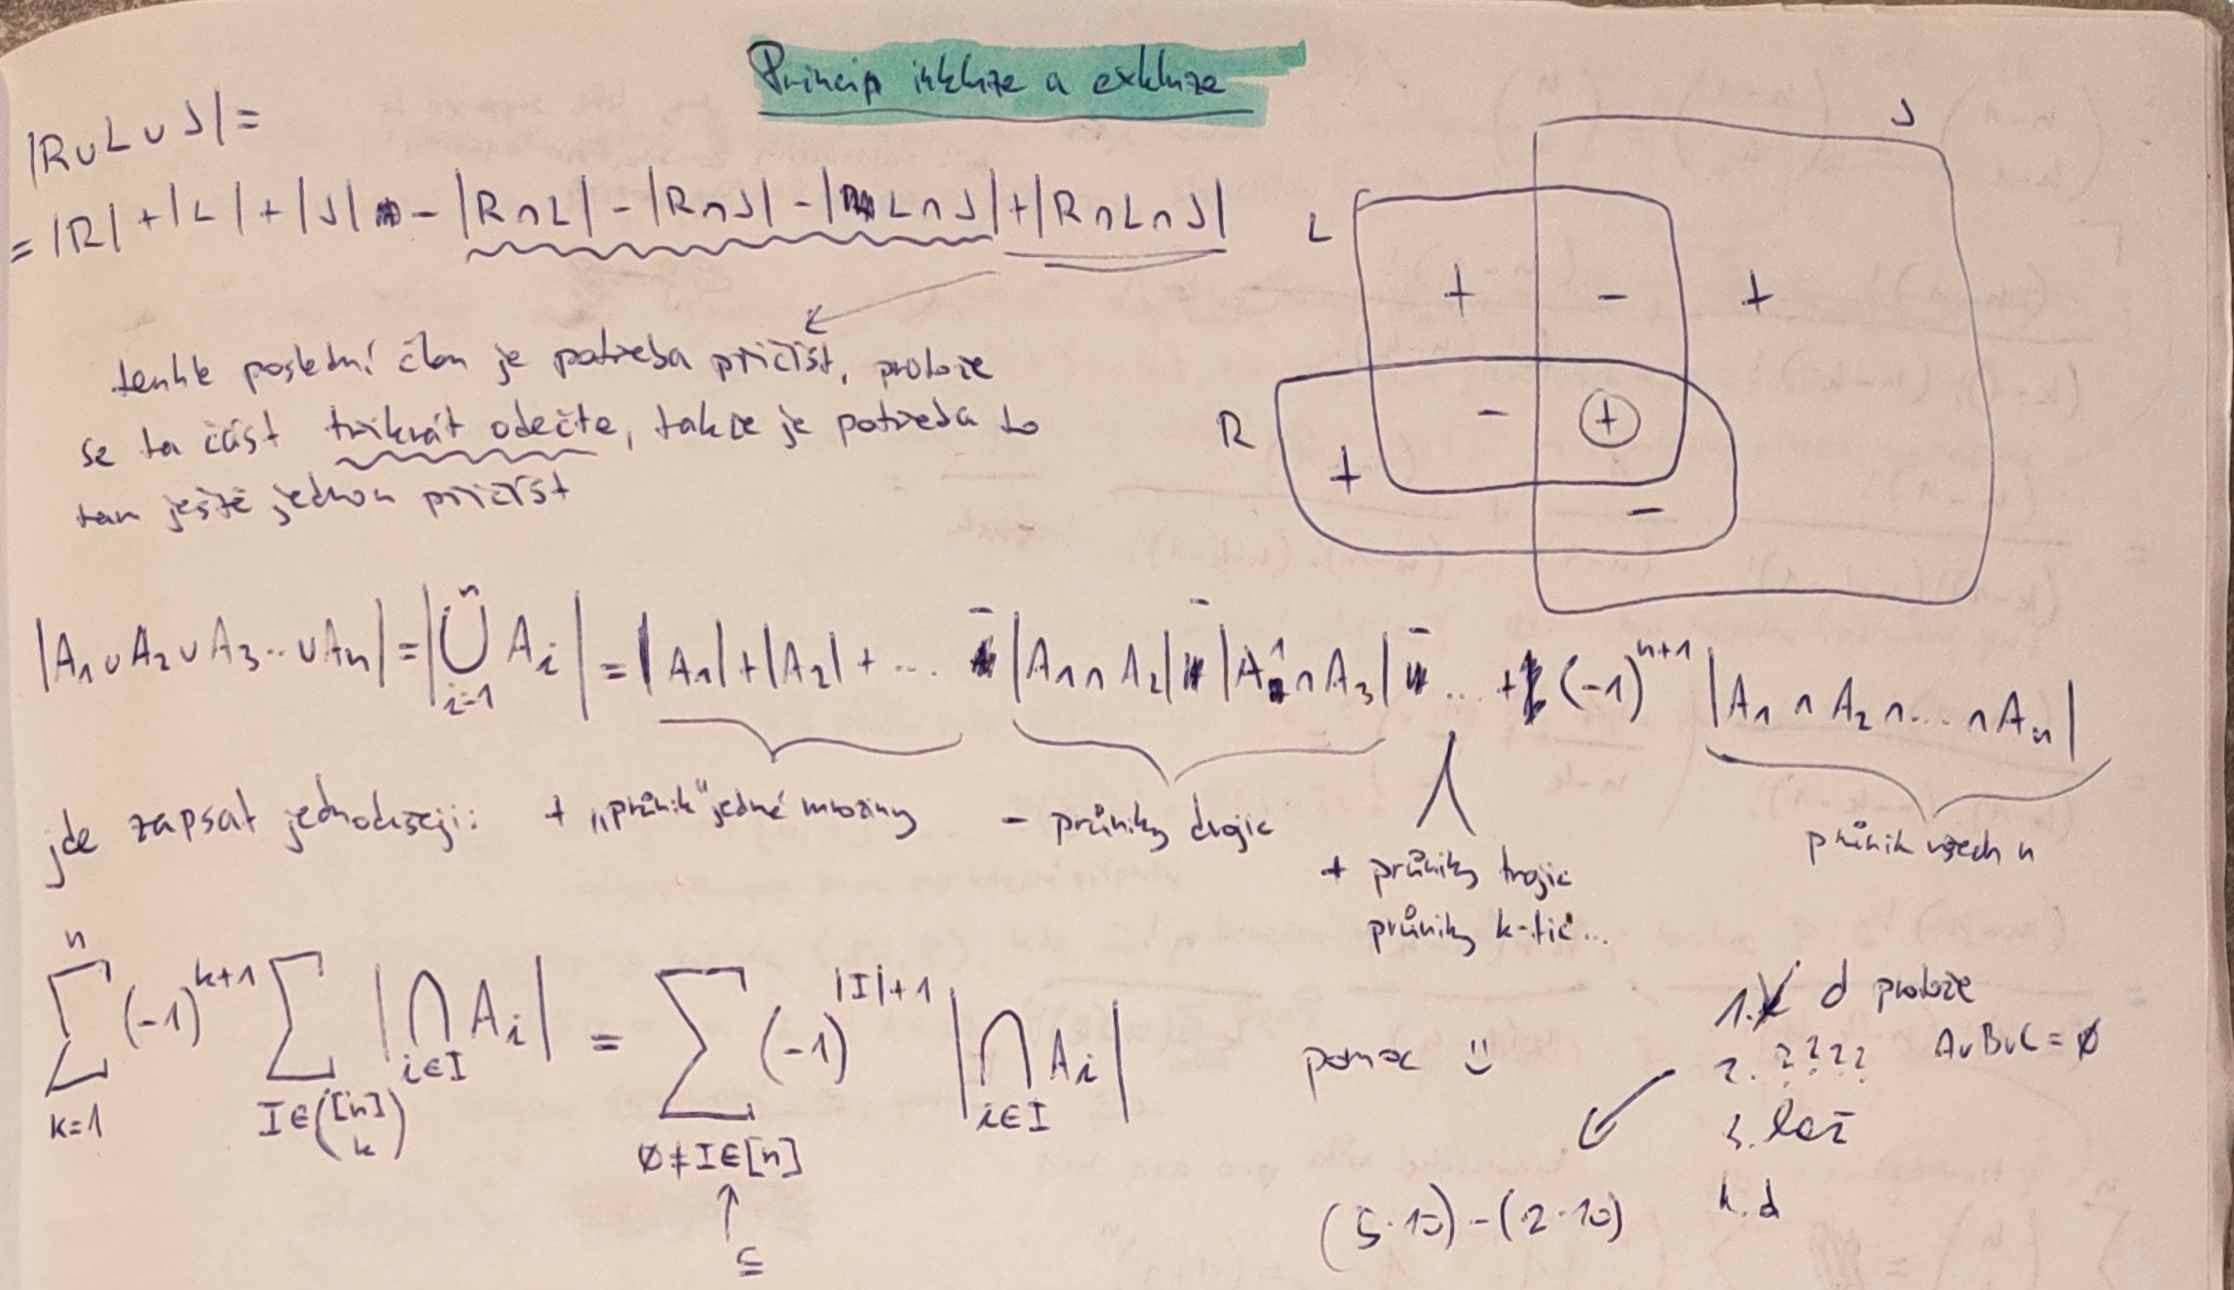 Princip inkluze a exkluze
|R∪L∪J| =
= |R| + |L| + |J| - |R∩L| - |R∩J| - |L∩J| + |R∩L∩J|
tenhle poslední člen je potřeba přičíst, protože
se ta část třikrát odečte, takže je potřeba to
tam ještě jednou přičíst
J
L
+ - +
R
- +
+
-
|A₁∪A₂∪A₃..∪Aₙ| = |⋃ⁿᵢ₌₁ Aᵢ| = |A₁| + |A₂| + ... - |A₁∩A₂| - |A₁∩A₃| - ... + (-1)ⁿ⁺¹ |A₁∩A₂∩...∩Aₙ|
jde zapsat jednodušeji:
+ „průnik" jedné množiny
- průniky dvojic
+ průniky trojic
průniky k-tic...
průnik všech n
∑ⁿₖ₌₁ (-1)ᵏ⁺¹ ∑_{I∈([n] k)} |⋂_{i∈I} Aᵢ| = ∑_{∅≠I∈[n]} (-1)^{|I|+1} |⋂_{i∈I} Aᵢ|
↑
⊆
pomoc
1. d protože
A∪B∪C = ∅
2. ????
3. lež
4. d
(5·10) - (2·10)